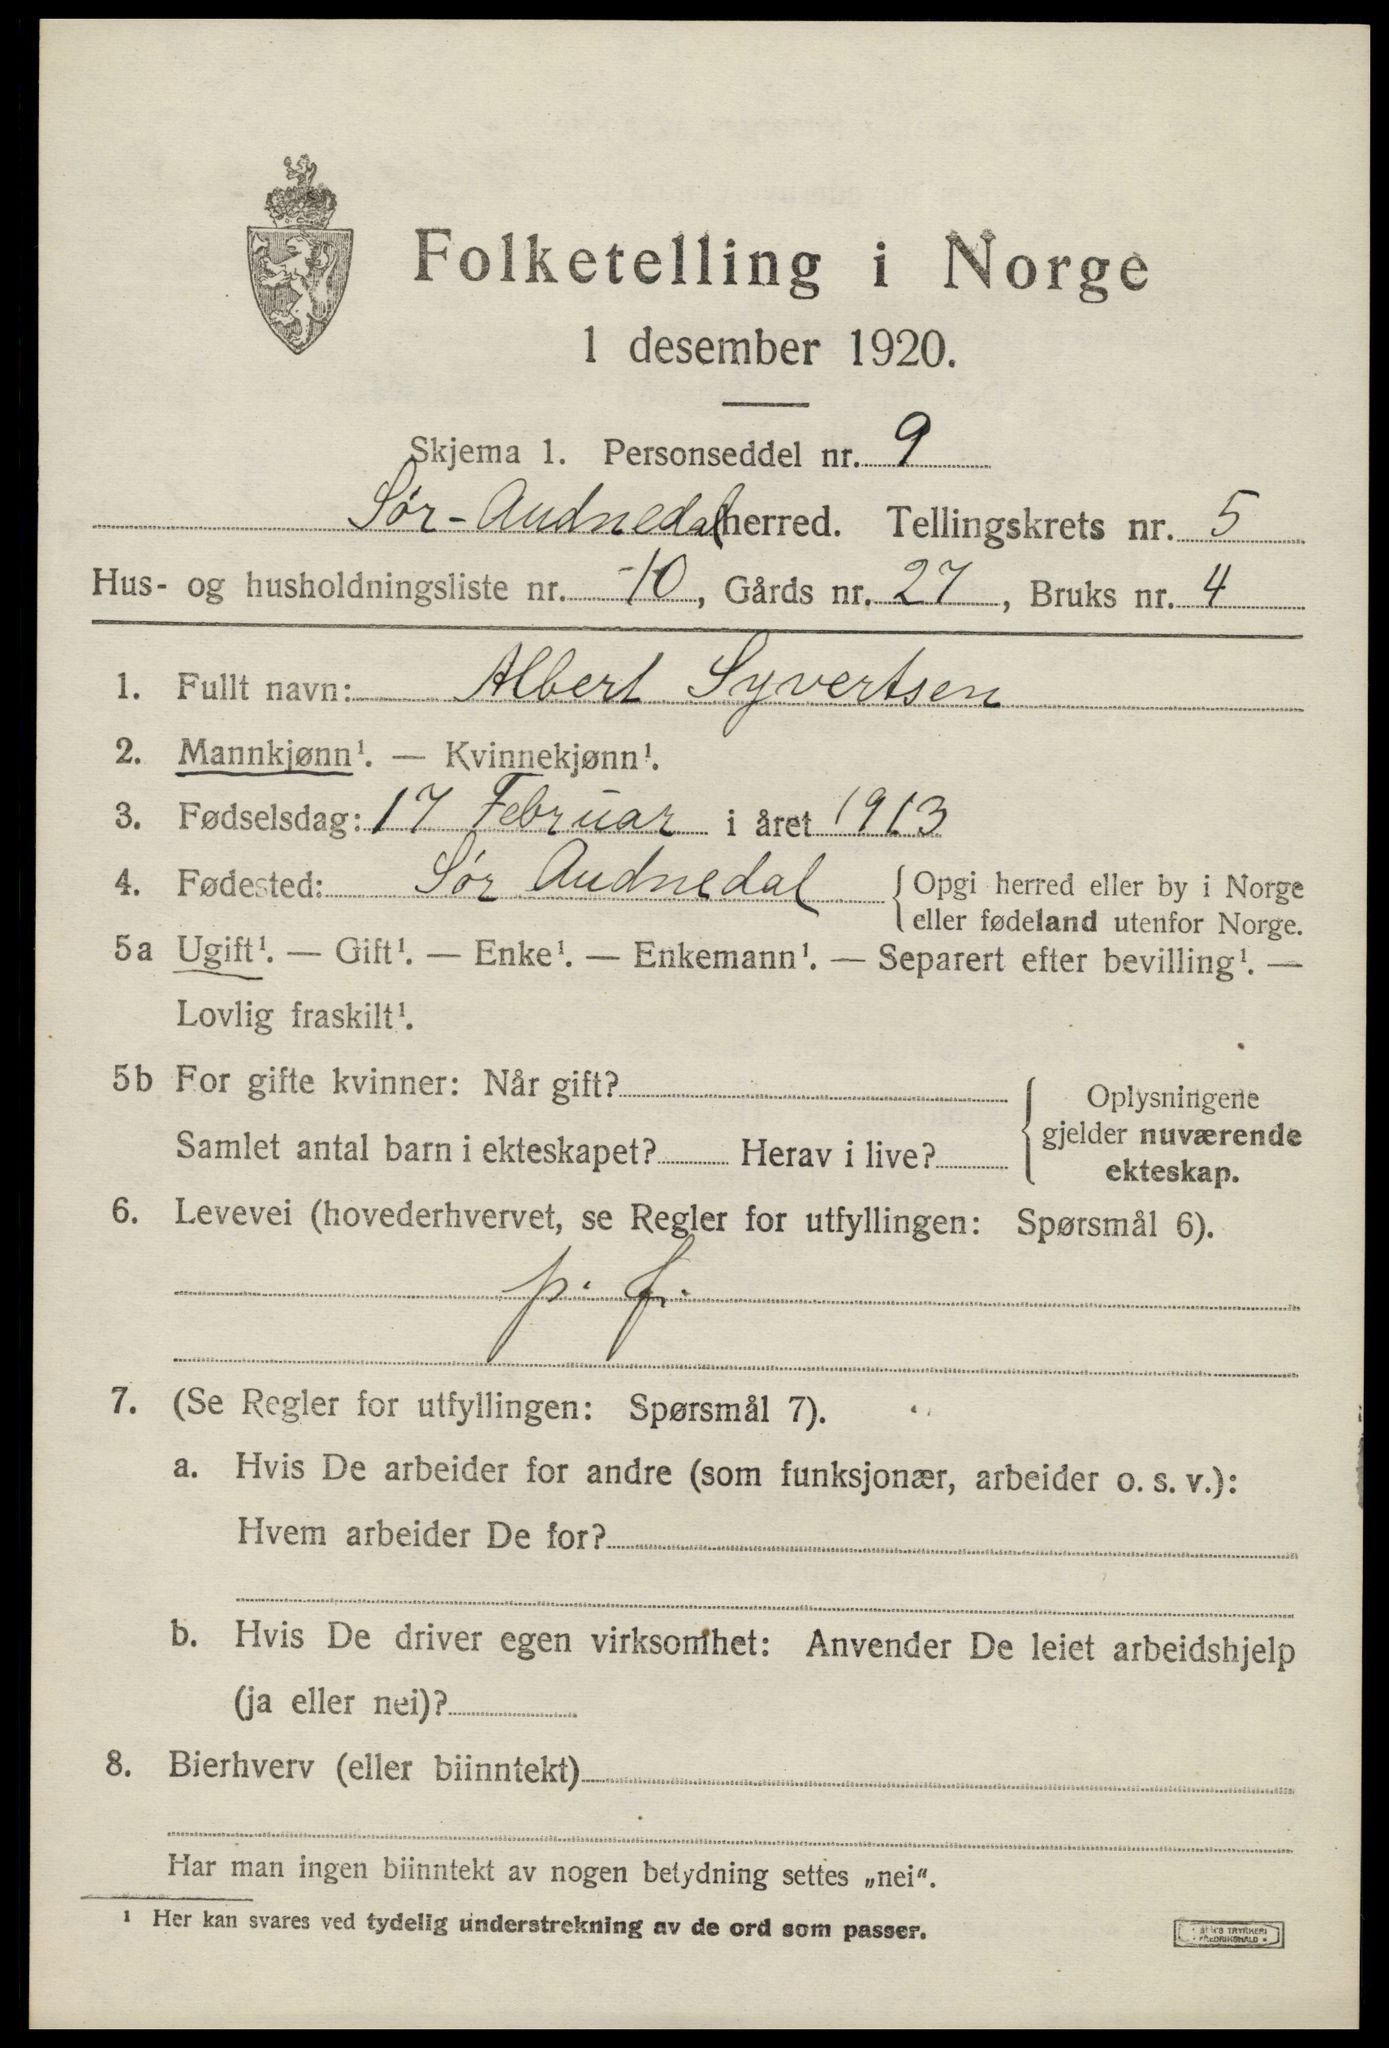 Folketelling i Norge
1 desember 1920.
Skjema 1. Personseddel nr. 9
Sør-Audnedal herred. Tellingskrets nr. 5
Hus- og husholdningsliste nr. 10, Gårds nr. 27, Bruks nr. 4
1. Fullt navn: Albert Syvertsen
2. Mannkjønn¹. — Kvinnekjønn¹.
3. Fødselsdag: 17 Februar i året 1913
4. Fødested: Sør Audnedal { Opgi herred eller by i Norge
eller fødeland utenfor Norge.
5a Ugift¹. — Gift¹. — Enke¹. — Enkemann¹. — Separert efter bevilling¹. —
Lovlig fraskilt¹.
5b For gifte kvinner: Når gift?
Samlet antal barn i ekteskapet? Herav i live?
Oplysningene
gjelder nuværende
ekteskap.
6. Levevei (hovederhvervet, se Regler for utfyllingen: Spørsmål 6).
p. f.
7. (Se Regler for utfyllingen: Spørsmål 7).
a. Hvis De arbeider for andre (som funksjonær, arbeider o. s. v.):
Hvem arbeider De for?
b. Hvis De driver egen virksomhet: Anvender De leiet arbeidshjelp
(ja eller nei)?
8. Bierhverv (eller biinntekt)
Har man ingen biinntekt av nogen betydning settes „nei“.
¹ Her kan svares ved tydelig understrekning av de ord som passer.
TRYKKERI
FREDRIKSHALD